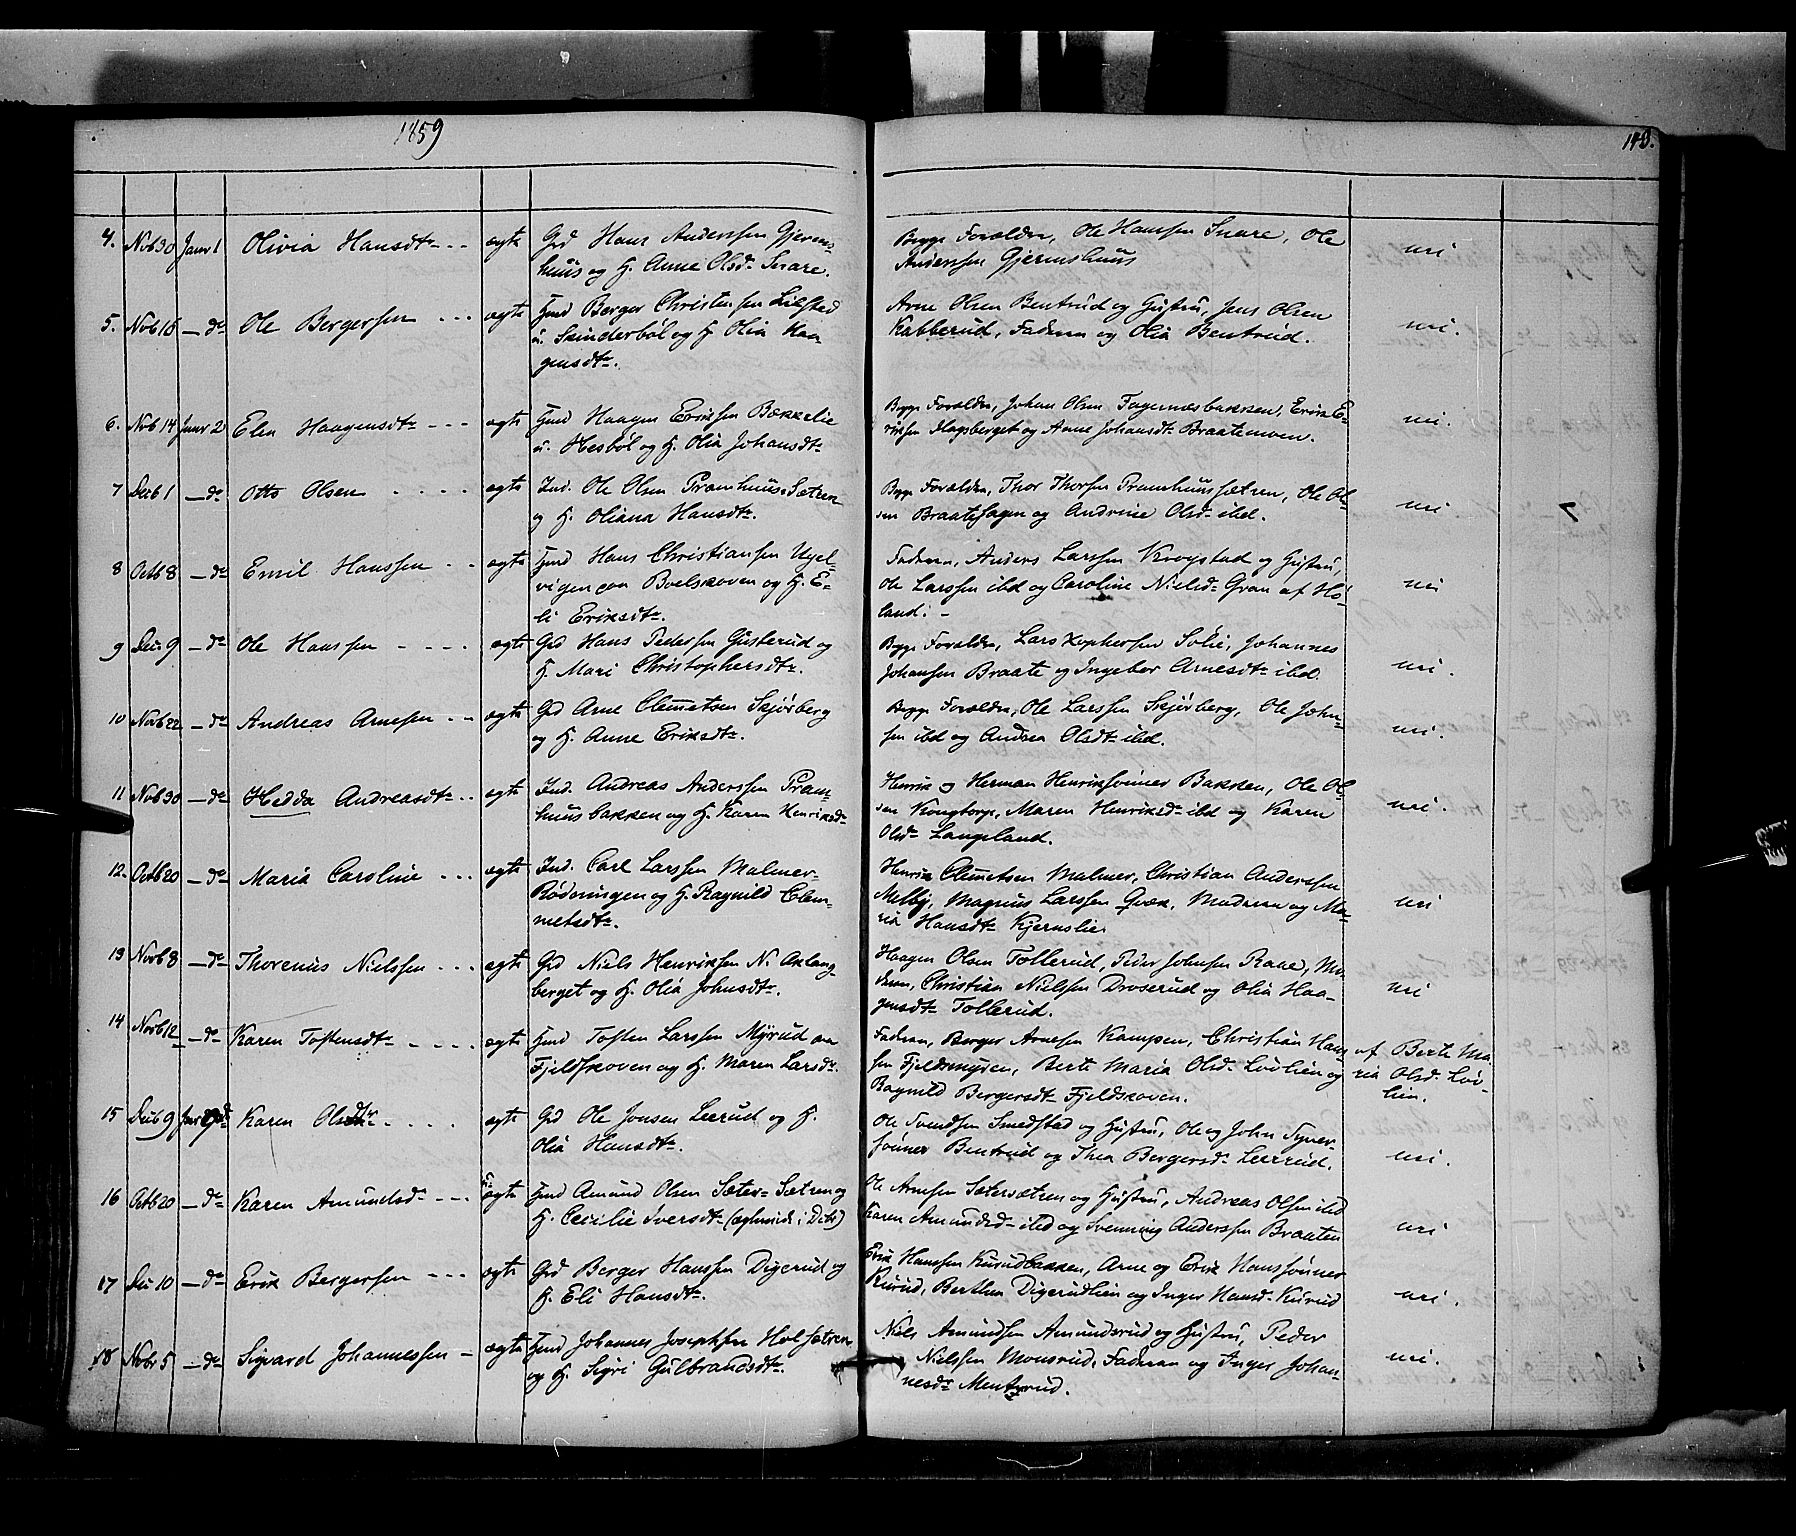 1859
140.
4. Novb 30 Janv 1 Olivia Hansdtr ægte Grd Hans Anderssen Gjerms-
huus og H. Anne Olsd. Snare.
Begge Forældre, Ole Hansen Snare, Ole
Anderssen Gjermshuus
uri
5. Novb 16 – do Ole Bergersen ægte Hmd Berger Christensen Lilstad
u. Skinderbøl og H. Olia Haa-
gensdtr.
Arne Olsen Bentrud og Hustru, Jens Olsen
Kabberud, Faderen og Olia Bentrud.
uri.
6. Novb 14 Janv 2 Elen Haagensdtr ægte Hmd Haagen Eriksen Bækkelie
u. Hesbøl og H. Olia Johansdtr
Begge Forældre, Johan Olsen Fagernæsbakken, Erik E-
riksen Flagsberget og Anne Johansdtr Braatenmoen.
uri.
7 Decb 1 – do Otto Olsen ægte Ind. Ole Olsen Pramhuus-Sætren
og H. Oliana Hansdtr.
Begge Forældre, Thor Thorsen Pramhuussætren, Ole Ol-
sen Braatehagen og Andrine Olsd. ibd.
uri
8 Octb 8 – do Emil Hanssen ægte Hmd Hans Christiansen Ugel-
vigen paa Boelskoven og H. E-
li Eriksdtr.
Faderen, Anders Larssen Krogstad og Hustru,
Ole Larssen ibd og Caroline Nielsd. Gran af Hø-
land. –
uri
9 Dec. 9 – do Ole Hanssen ægte Grd Hans Pedersen Gusterud og
H. Mari Christophersdtr.
Begge Forældre, Lars Xophersen Solie, Johannes
Johansen Braate og Ingebor Arnesdtr ibd.
uri.
10 Novb 22 – do Andreas Arnesen ægte Grd Arne Clemetsen Skjørberg
og H. Anne Eriksdtr.
Begge Forældre, Ole Larssen Skjørberg, Ole John-
sen ibd og Andrea Olsdtr ibd.
uri.
11 Novb 30 – do Hedda Andreasdtr ægte Ind. Andreas Anderssen Pram-
huusbakken og H. Karen Henriksd.
Henrik og Herman Henriksønner Bakken, Ole Ol-
sen Kongtorp, Maren Henriksd. ibd og Karen
Olsd. Langeland.
uri.
12. Octb 20 – do Maria Caroline ægte Ind. Carl Larssen Malmer-
Rødningen og H. Ragnild Clem-
metsdtr.
Henrik Clemetsen Malmer, Christian Anderssen
Melby, Magnus Larssen Qvæk, Moderen og Ma-
ria Hansdtr Kjernslie.
uri
13 Novb 8 – do Thorenus Nielssen ægte Grd Niels Henriksen N. Aklang-
berget og H. Olia Johnsdtr.
Haagen Olsen Tollerud, Peder Johnsen Rane, Mo-
deren, Christian Nielssen Droserud og Olia Haa-
gensdtr Tollerud.
uri
14 Novb 12 – do Karen Tostensdtr ægte Hmd Tosten Larssen Myrud paa
Fjeldskoven og H. Maren Larsd.
Faderen, Berger Arnesen Kampen, Christian Hans-
sen Fjeldsmyren, Berte Maria Olsd. Lövlien og
Ragnild Bergersdtr Fjeldskoven.
af Berte Ma-
ria Olsd. Löv-
lien.
15 Decb 9 Karen Olsdtr ægte Grd Ole Jonsen Leerud og H.
Olia Hansdtr.
Ole Svendsen Smedstad og Hustru, Ole og John Syver-
sønner Bentrud og Thea Bergersd. Leerud.
uri.
16 Octb 20 – do Karen Amundsd. u-ægte Hmd Amund Olsen Sæter-Sætren og
H. Cecilie Iversdtr
Ole Arnesen Sætersætren og Hustru, Andreas Olsen ibd
Karen Amundsd. ibd og Svenning Anderssen Braaten
uri
17 Dec 10 – do Erik Bergersen ægte Grd Berger Hanssen Digerud og
H. Eli Hansdtr.
Erik Hanssen Kurudbakken, Arne og Erik Hanssønner
Kurud, Berthea Digerudlien og Inger Hansd. Kurud
uri.
18 Novb 5 – do Sigvard Johannessen ægte Hmd Johannes Josephsen Holsætren
og H. Sigri Gulbrandsdtr.
Niels Amundsen Amundsrud og Hustru, Peder
Nielssen Monsrud, Faderen og Inger Johan-
nesd. Mentzrud.
uri.